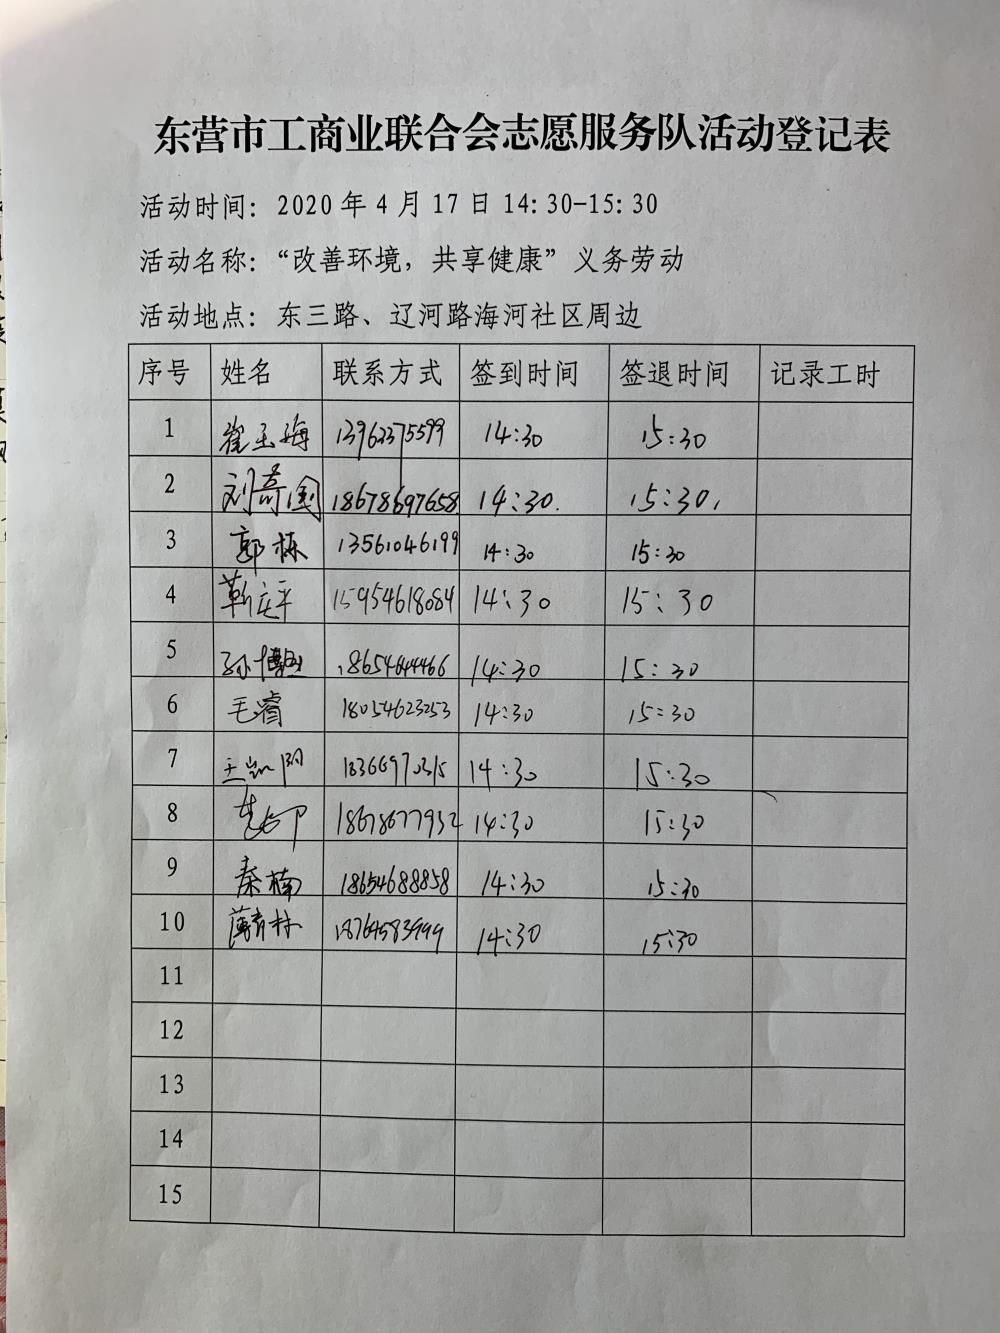 东营市工商业联合会志愿服务队活动登记表
活动时间：2020年4月17日14:30-15:30
活动名称：“改善环境，共享健康”义务劳动
活动地点：东三路、辽河路海河社区周边
序号 姓名 联系方式 签到时间 签退时间 记录工时
1 崔玉海 13962375599 14:30 15:30
2 刘奇国 18678697658 14:30. 15:30.
3 郭栋 13561046199 14:30 15:30
4 靳庆平 15954618084 14:30 15:30
5 孙 18654644466 14:30 15:30
6 毛睿 18054623253 14:30 15:30
7 王凯阳 18366970315 14:30 15:30
8 18678677932 14:30 15:30
9 秦楠 18654688858 14:30 15:30
10 薄青林 18764583999 14:30 15:30
11
12
13
14
15